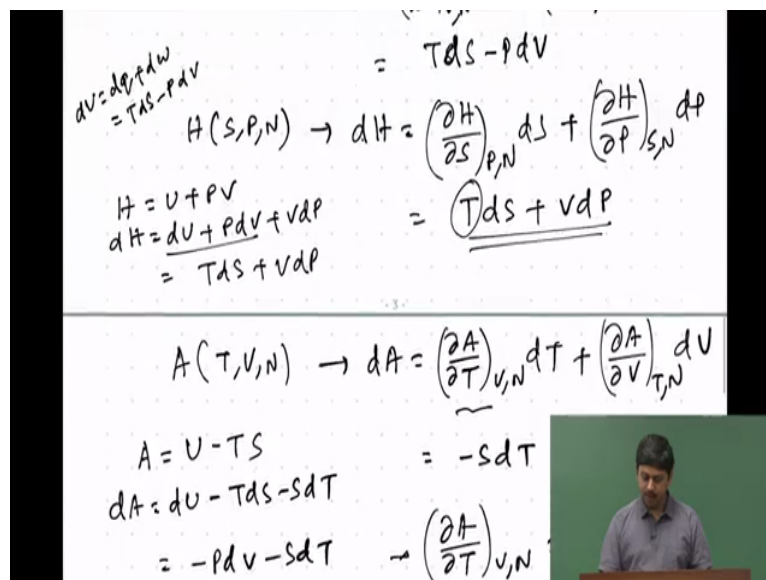 = TdS - PdV
dU = dq + dw
= TdS - PdV
H(S,P,N) → dH = (∂H/∂S)_P,N dS + (∂H/∂P)_S,N dP
H = U + PV
dH = dU + PdV + VdP
= TdS + VdP
= TdS + VdP
- 3 -
A(T,V,N) → dA = (∂A/∂T)_V,N dT + (∂A/∂V)_T,N dV
A = U - TS
= -SdT
dA = dU - TdS - SdT
= -PdV - SdT
- (∂A/∂T)_V,N =